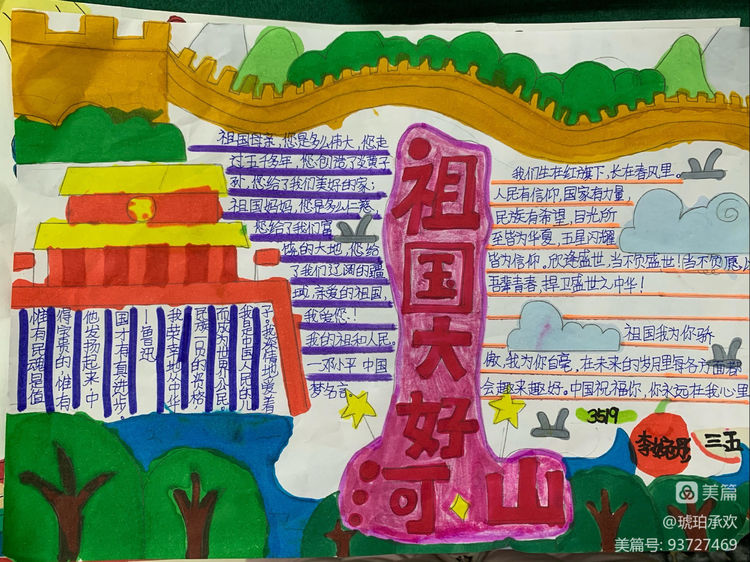 祖国大好河山
祖国母亲,您是多么伟大,您走
过五千多年,您创造了炎黄子
孙,您给了我们美好的家;
祖国妈妈,您是多么仁慈,
您给了我们富
饶的大地,您给
了我们辽阔的疆
域,亲爱的祖国,
我爱您!
我的祖和人民。
—邓小平 中国
梦名言
我们生在红旗下,长在春风里。
人民有信仰,国家有力量,
民族有希望,目光所
至皆为华夏,五星闪耀
皆为信仰。欣逢盛世,当不负盛世!当不负愿,
吾辈青春,捍卫盛世之中华!
祖国我为你骄
傲,我为你自豪,在未来的岁月里每各方面都
会越来越好。中国祝福你,你永远在我心里
子。我深情地爱着
我是中国人民的儿
而成为世界公民
民族一员的资格
我荣幸地以中华
—鲁迅
国才有真进步。
他发扬起来,中
得宝贵的,惟有
惟有民魂是值
3519
三五
美篇
@琥珀承欢
美篇号: 93727469